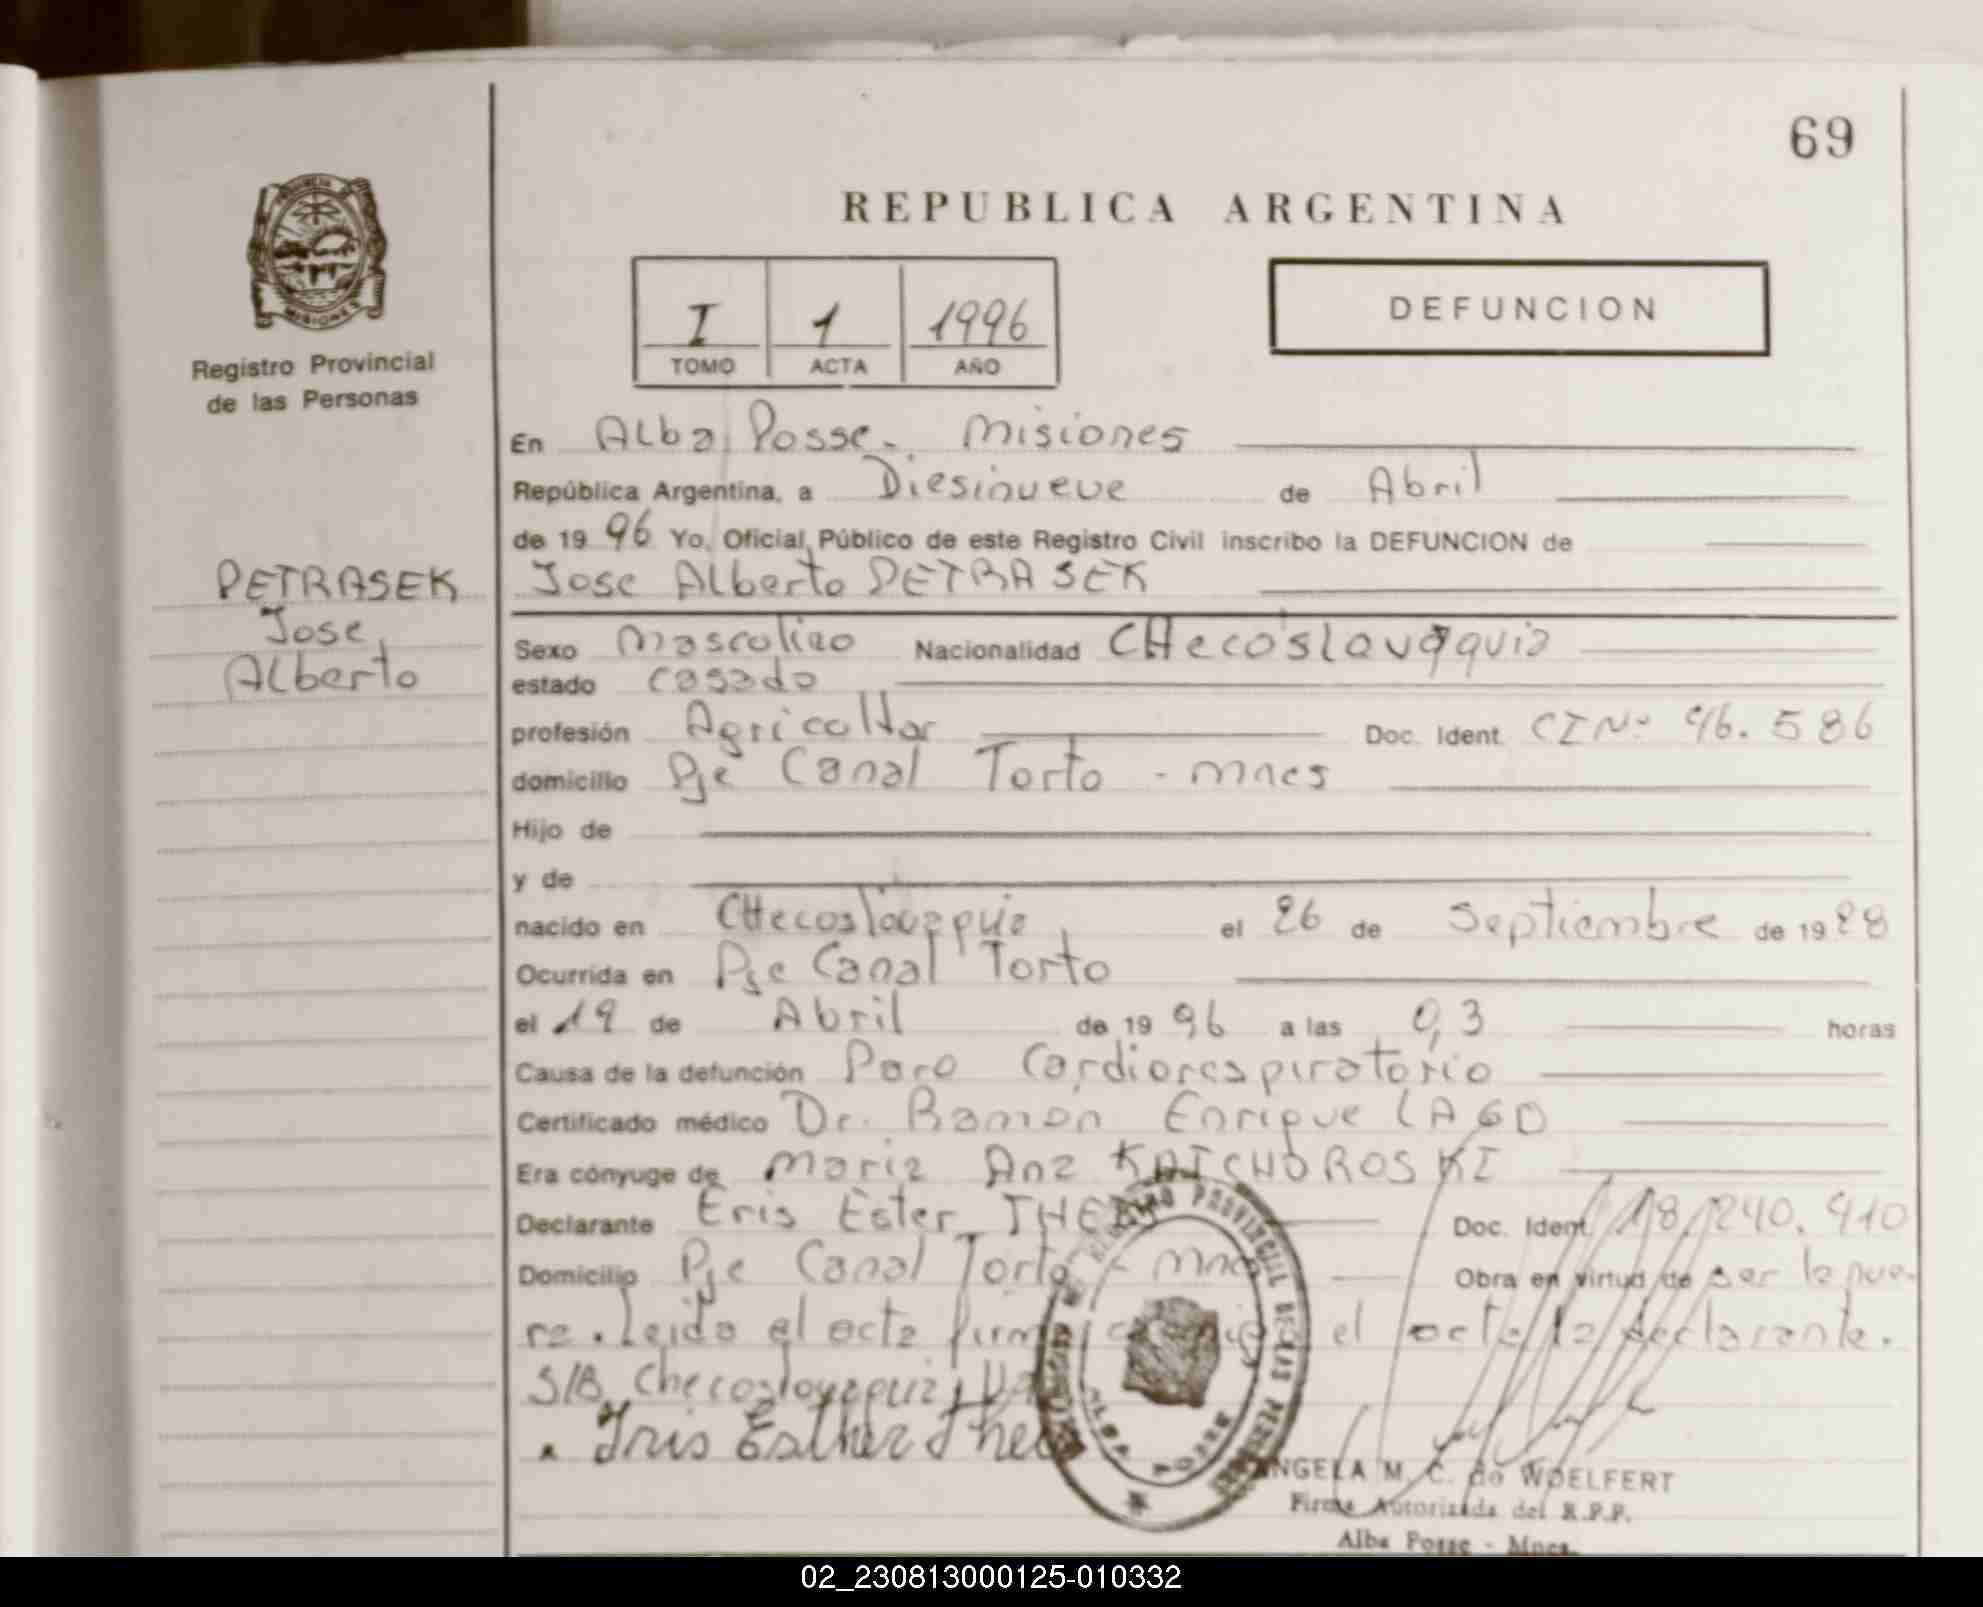 69
REPUBLICA ARGENTINA
PROVINCIA
MISIONES
Registro Provincial
de las Personas
I 1 1996
TOMO ACTA AÑO
DEFUNCION
En Alba Posse. Misiones
República Argentina, a Diesinueve de Abril
de 1996 Yo, Oficial Público de este Registro Civil inscribo la DEFUNCION de
Jose Alberto PETRASEK
PETRASEK
Jose
Alberto
Sexo Mascolino Nacionalidad CHecoslovaquia
estado casado
profesión Agricoltor Doc. Ident. CI Nº 46.586
domicilio Pje Canal Torto - Mnes
Hijo de
y de
nacido en CHecoslovaquia el 26 de Septiembre de 1928
Ocurrida en Pje Canal Torto
el 19 de Abril de 1996 a las 0,3 horas
Causa de la defunción Paro Cardiorespiratorio
Certificado médico Dr. Ramon Enrique LAGO
Era cónyuge de Maria Ana KATCHOROSKI
Declarante Eris Ester THEIS Doc. Ident. 18.240.910
Domicilio Pje Canal Torto - Mnes Obra en virtud de ser la nue-
ra. Leida el acta firma el acta la declarante.
S/B. Checoslovaquia,
Iris Esther
REGISTRO PROVINCIAL DE LAS PERSONAS
ALBA POSSE
ANGELA M. C. de WOELFERT
Firma Autorizada del R.P.P.
Alba Posse - Mnes.
02_230813000125-010332